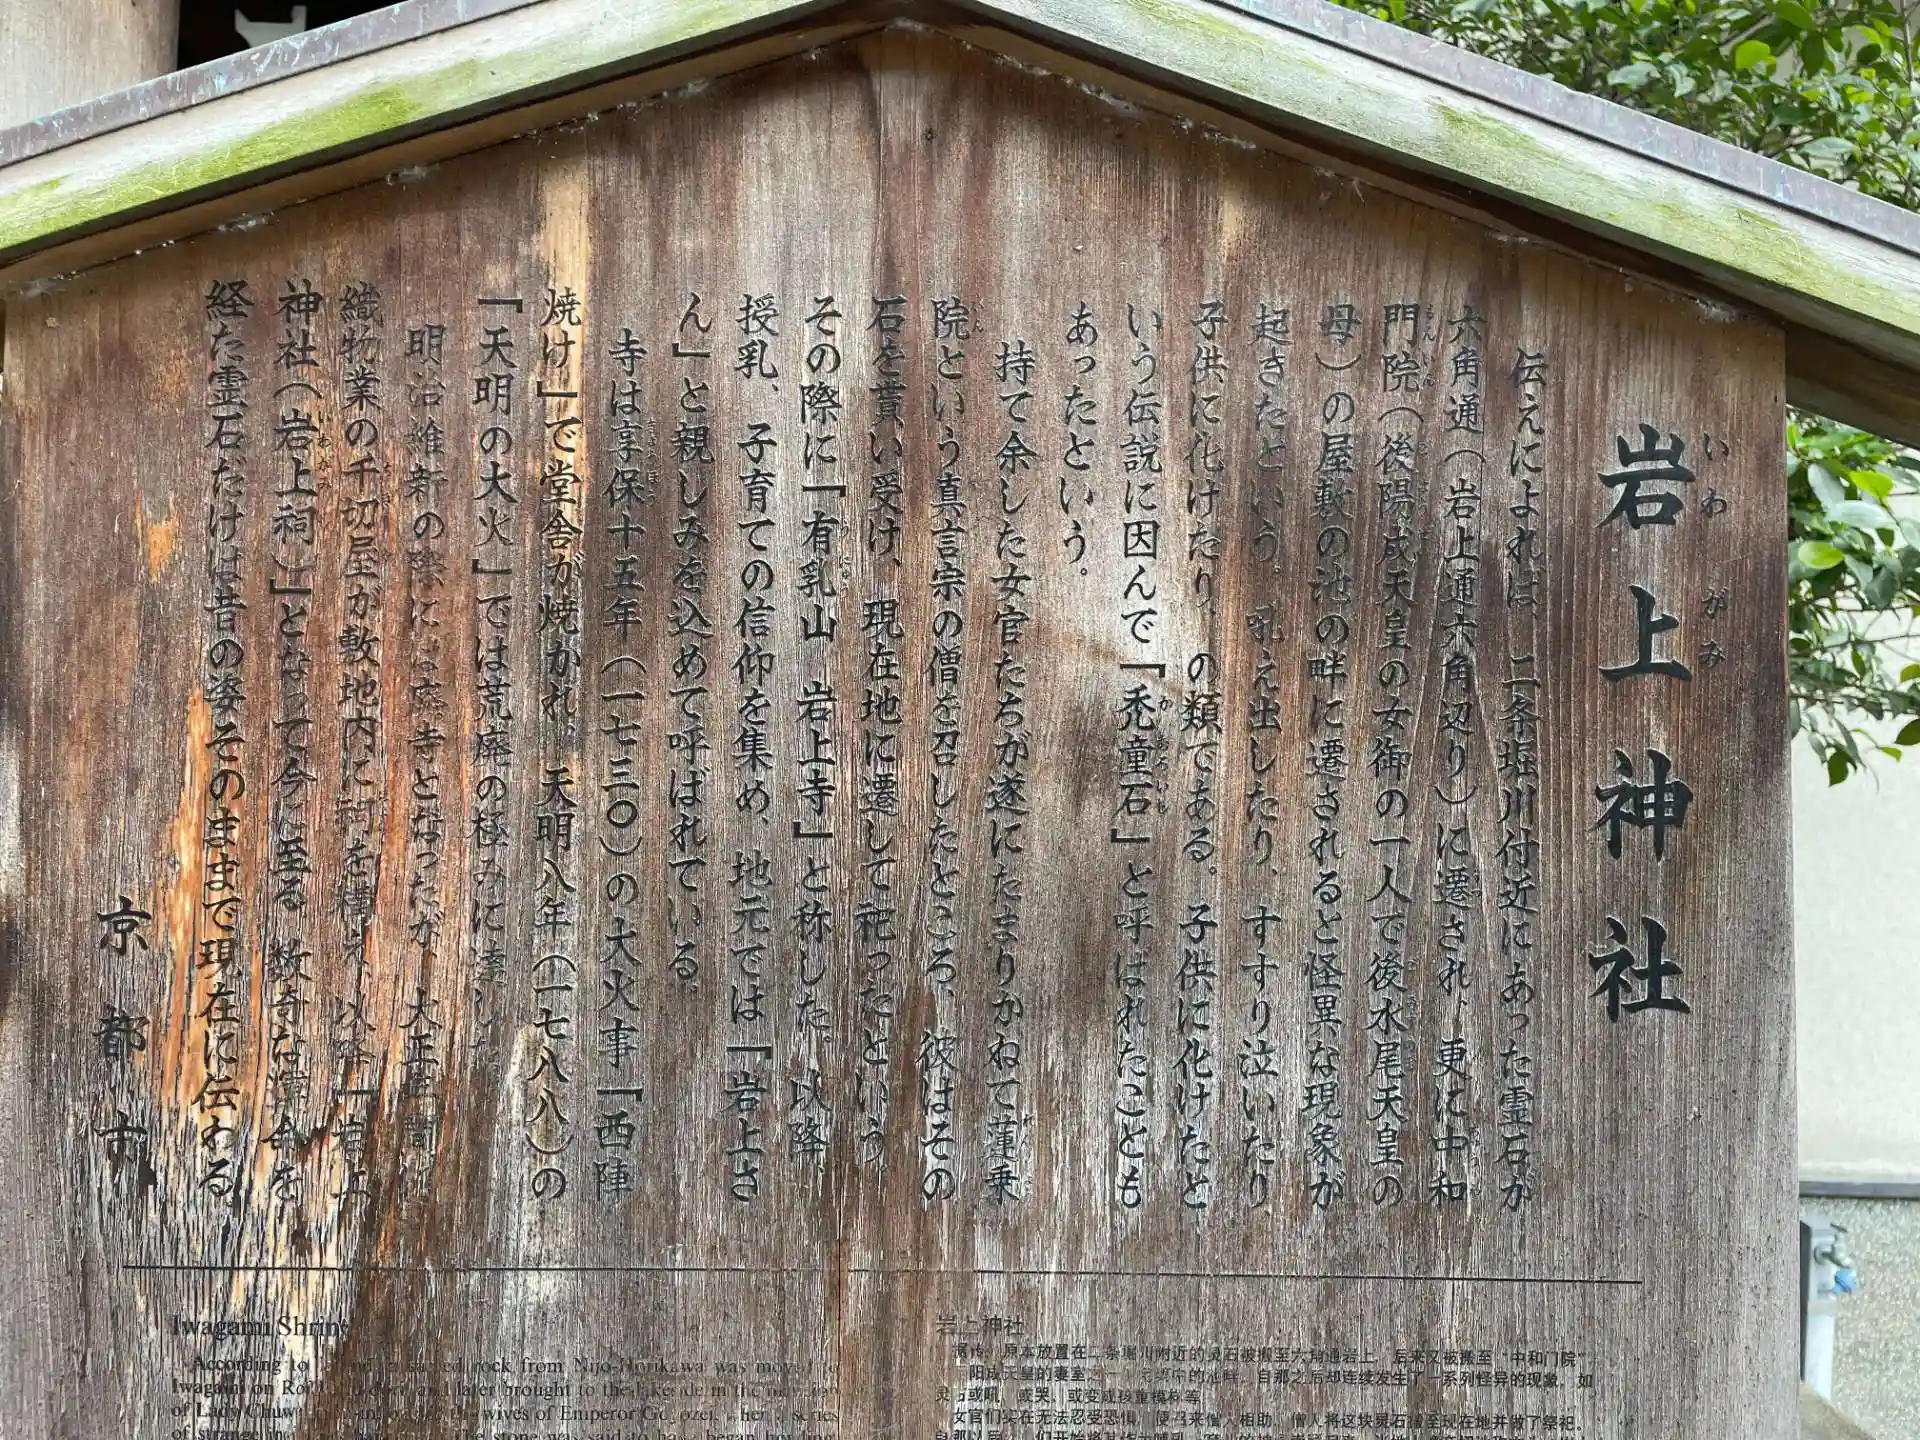 岩上神社
いわ がみ
伝えによれば、二条堀川付近にあった霊石が
六角通(岩上通六角辺り)に遷され、更に中和
門院(後陽成天皇の女御の一人で後水尾天皇の
母)の屋敷の池の畔に遷されると怪異な現象が
起きたという。吼え出したり、すすり泣いたり
子供に化けたり、の類である。子供に化けたと
いう伝説に因んで「禿童石」と呼ばれたことも
あったという。
持て余した女官たちが遂にたまりかねて蓮乗
院という真言宗の僧を召したところ、彼はその
石を貰い受け、現在地に遷して祀ったという。
その際に「有乳山 岩上寺」と称した。以降、
授乳、子育ての信仰を集め、地元では「岩上さ
ん」と親しみを込めて呼ばれている。
寺は享保十五年(一七三〇)の大火事「西陣
焼け」で堂舎が焼かれ、天明八年(一七八八)の
「天明の大火」では荒廃の極みに達した
明治維新の際には廃寺となったが、大正年間に
織物業の千切屋が敷地内に祠を構え、以降「岩上
神社(岩上祠)」となって今に至る 数奇な運命を
経た霊石だけは昔の姿そのままで現在に伝わる。
京都市
Iwagami Shrine
According to a sacred rock from Nijo-Horikawa was moved to
Iwagami on and later brought to the lakeside in the
of Lady Chuwa wives of Emperor Go series
of strange The stone was said to have began
岩上神社
据传,原本放置在二条堀川附近的灵石被搬至六角通岩上,后来又被搬至“中和门院”
阳成天皇的妻室之一 的池畔,自那之后却连续发生了一系列怪异的现象,如
灵石或吼,或哭,或变成孩童模样等
女官们实在无法忍受恐惧,便召来僧人相助,僧人将这块灵石搬至现在地并做了祭祀。